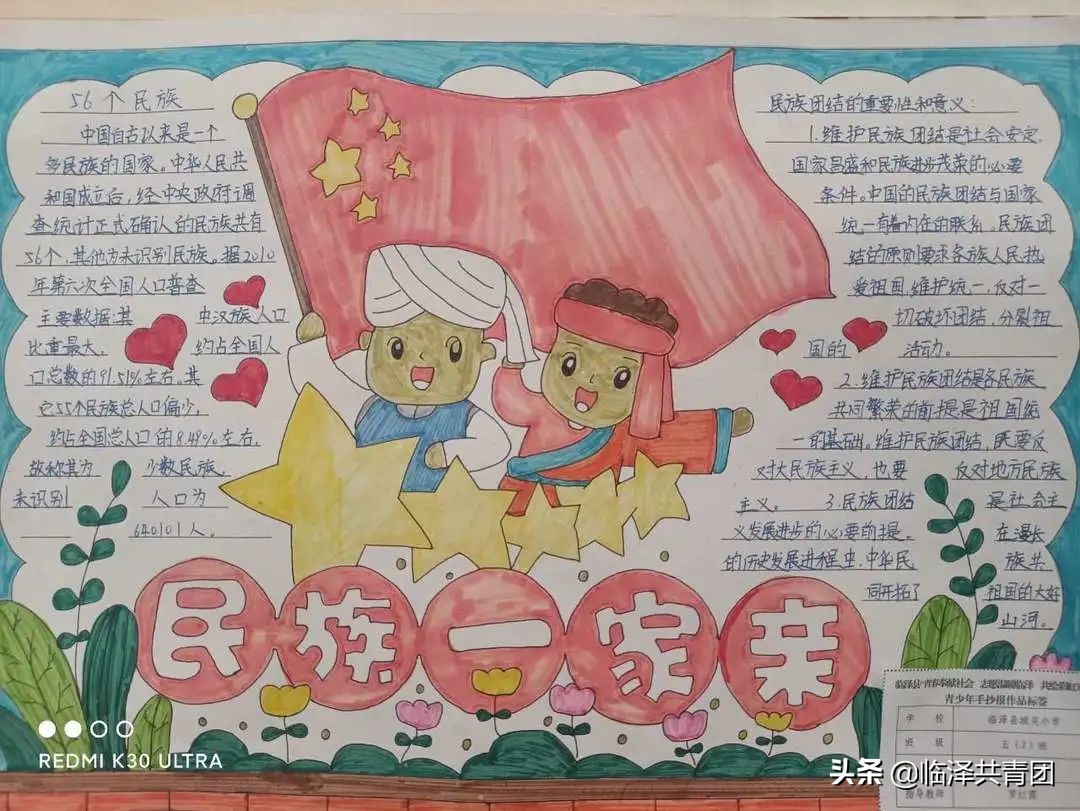 56个民族
中国自古以来是一个
多民族的国家。中华人民共
和国成立后，经中央政府调
查统计正式确认的民族共有
56个，其他为未识别民族。据2010
年第六次全国人口普查
主要数据：其 中汉族人口
比重最大， 约占全国人
口总数的91.51%左右。其
它55个民族总人口偏少，
约占全国总人口的8.49%左右，
故称其为 少数民族，
未识别 人口为
640101人。
民族团结的重要性和意义：
1.维护民族团结是社会安定.
国家昌盛和民族进步茂荣的必要
条件。中国的民族团结与国家
统一有着内在的联系。民族团
结的原则要求各族人民热
爱祖国，维护统一，反对一
切破坏团结，分裂祖
国的 活动。
2.维护民族团结是各民族
共同繁荣的前提是祖国统
一的基础。维护民族团结，既要反
对大民族主义，也要 反对地方民族
主义。 3.民族团结 是社会主
义发展进步的必要前提。 在漫长
的历史发展进程虫.中华民 族共
同开拓了 祖国的大好
山河。
民族一家亲
青少年手抄报作品标签
学 校 临泽县城关小学
班 级 五(2)班
指导教师 罗红霞
REDMI K30 ULTRA
头条 @临泽共青团